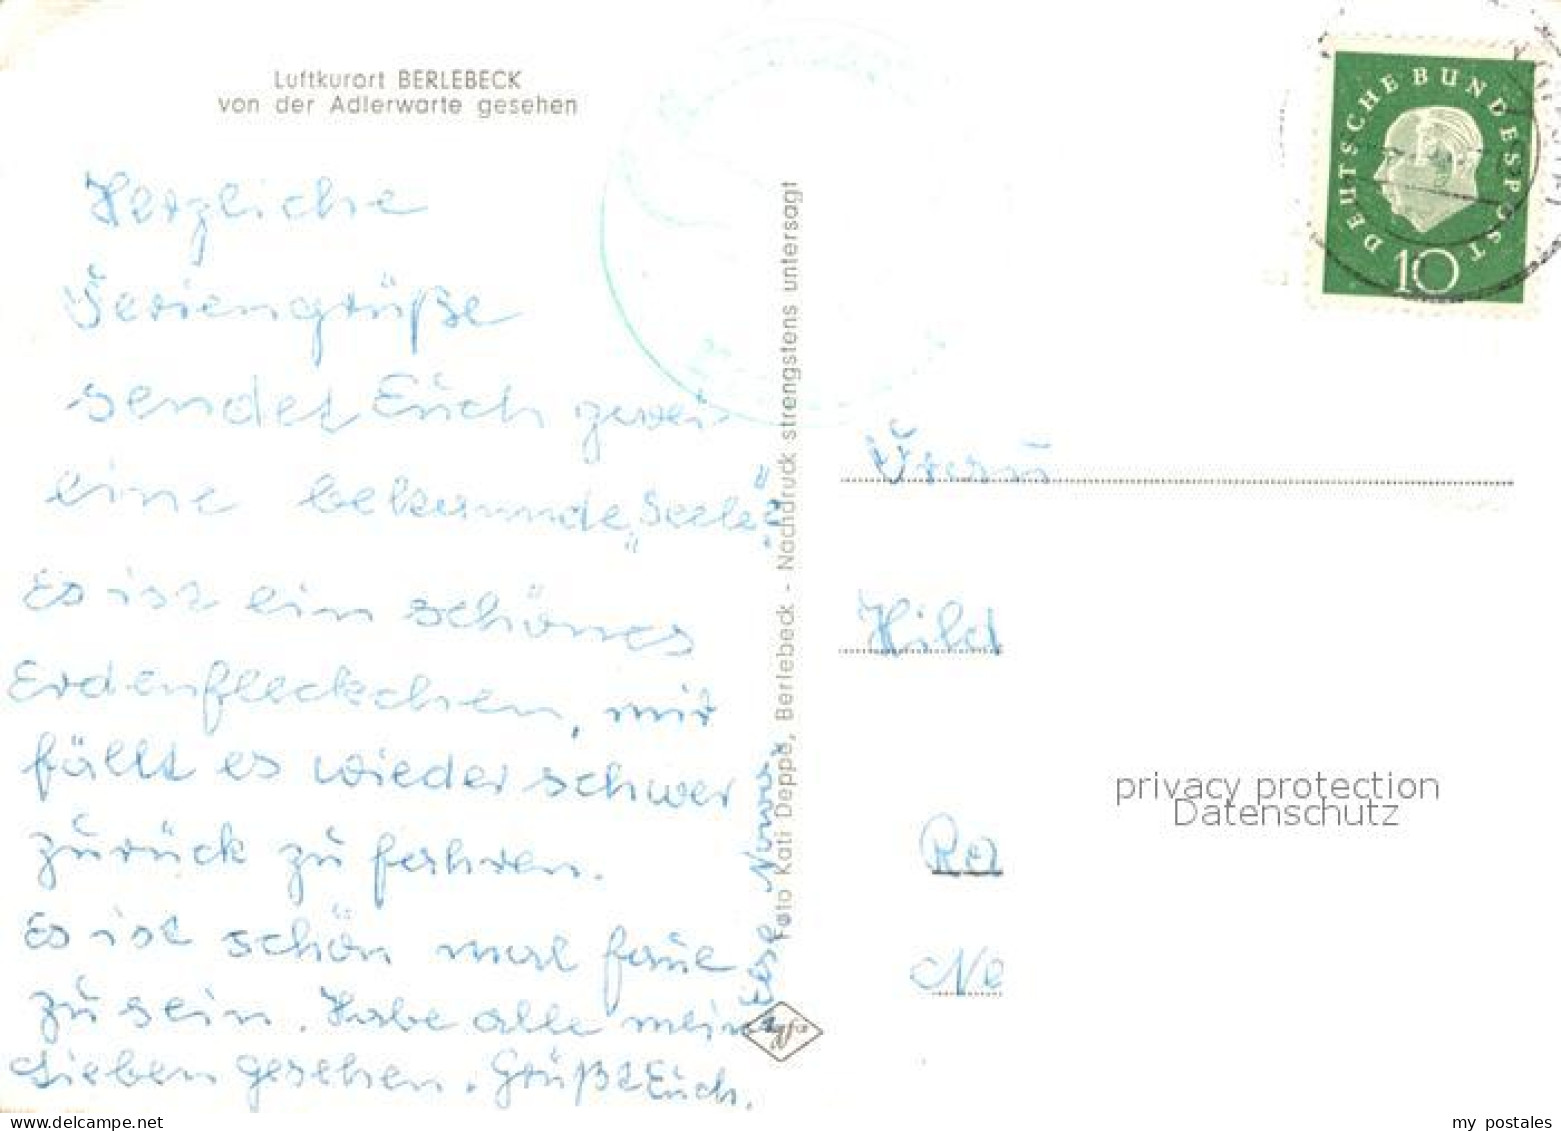 Luftkurort BERLEBECK
von der Adlerwarte gesehen
Herzliche
Feriengrüße
sendet Euch zwei
eine bekannnde „Seele“
Es ist ein schönes
Erdenfleckchen, mir
fällt es wieder schwer
zurück zu fahren.
Es ist schön mal faul
zu sein. Habe alle mein
Lieben gesehen. Grüßt Euch.
Foto Kati Deppe, Berlebeck - Nachdruck strengstens untersagt
DEUTSCHE BUNDESPOST
10
Frau
Hild
privacy protection
Datenschutz
Ne
delcampe.net
my_postales